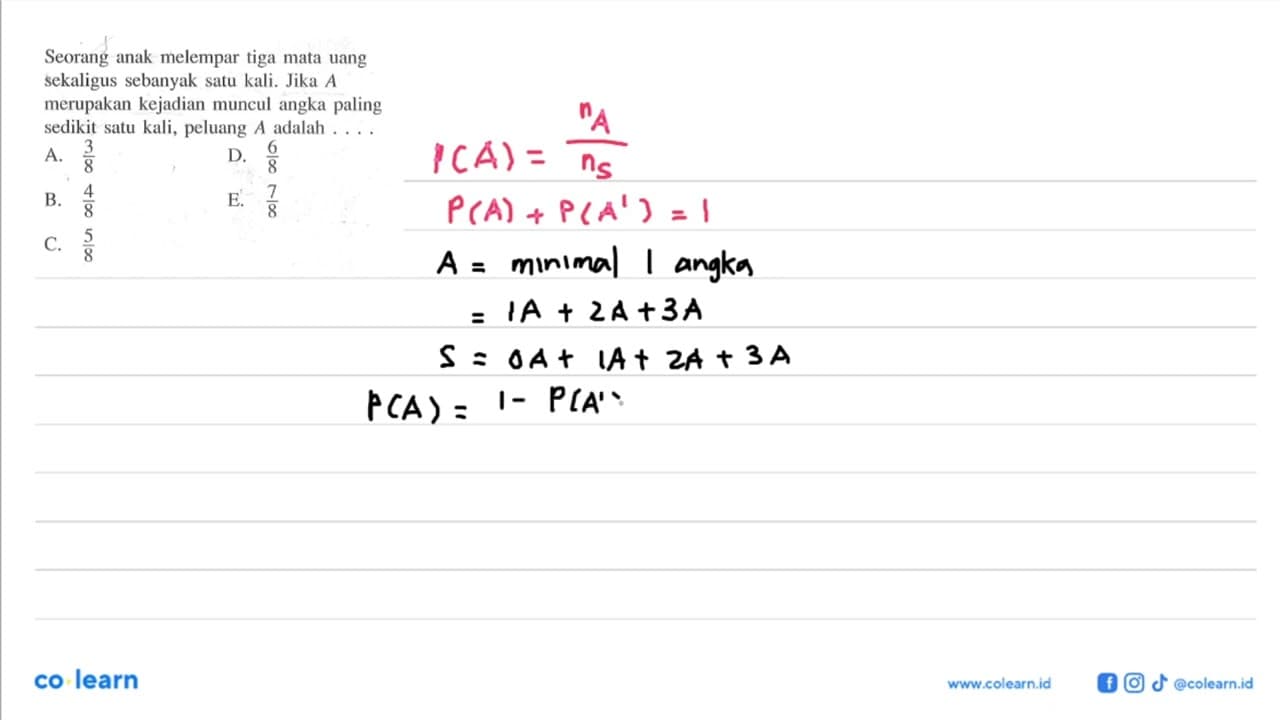 Seorang anak melempar tiga mata uang
sekaligus sebanyak satu kali. Jika A
merupakan kejadian muncul angka paling
sedikit satu kali, peluang A adalah . . . .
A. 3/8
D. 6/8
B. 4/8
E. 7/8
C. 5/8
P(A) = nA/nS
P(A) + P(A') = 1
A = minimal 1 angka
= 1A + 2A + 3A
S = 0A + 1A + 2A + 3A
P(A) = 1 - P(A'
co learn
www.colearn.id
@colearn.id